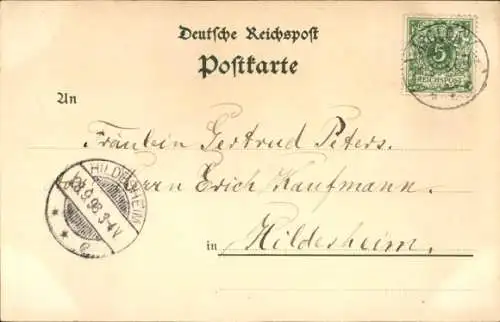 Deutsche Reichspost
Postkarte
5
REICHSPOST
An
Fräulein Gertrud Peters.
Herrn Erich Kaufmann.
in Hildesheim.
HILDESHEIM
9.98 3-4N
e